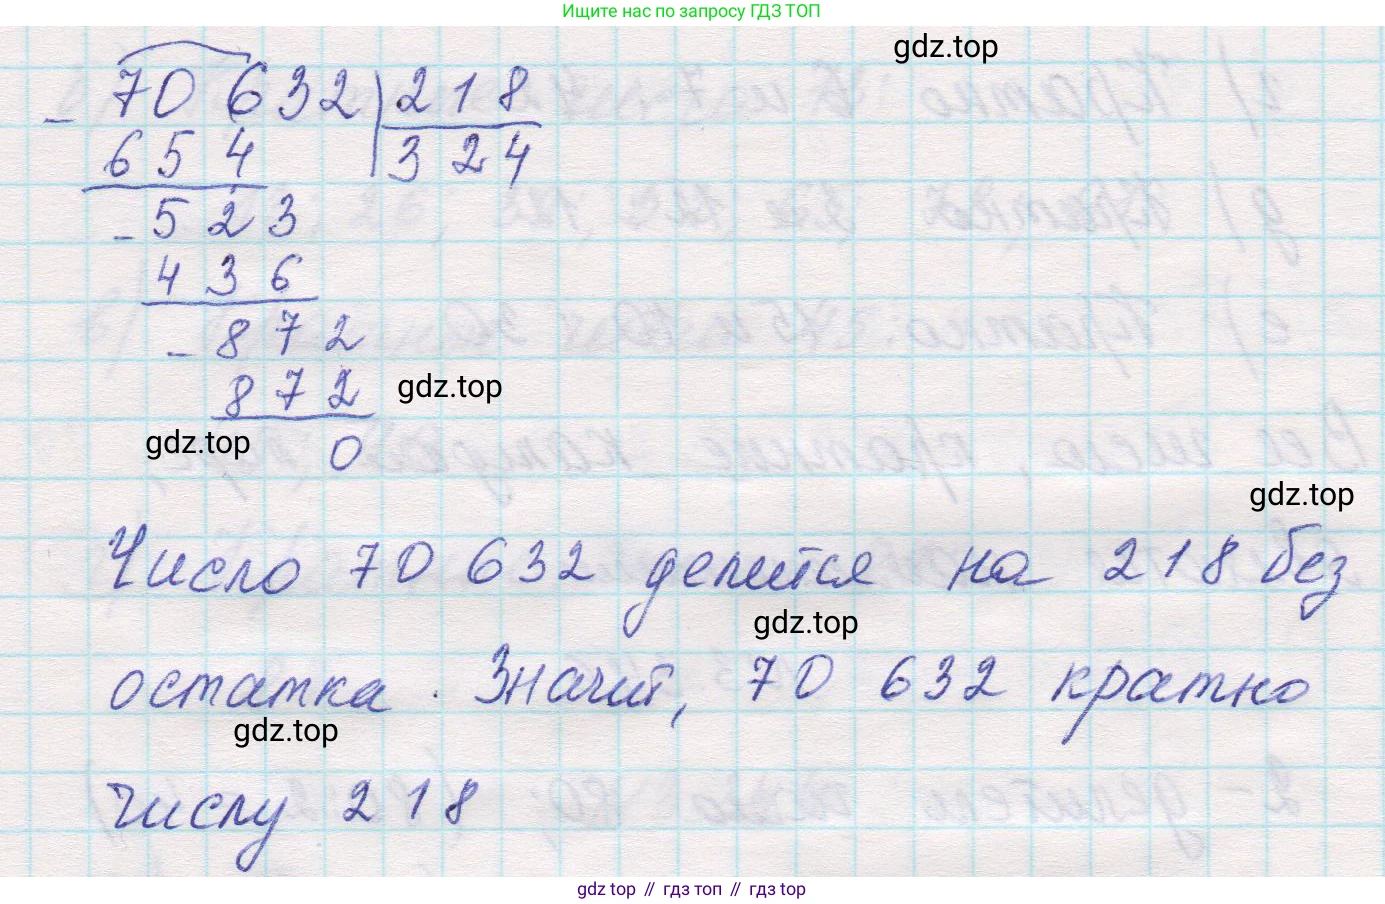 Ищите нас по запросу ГДЗ ТОП
gdz.top
70 632 218
654 324
523
436
872
872
gdz.top
gdz.top
0
gdz.top
Число 70 632 делится на 218 без
gdz.top
остатка. Значит, 70 632 кратно
gdz.top
числу 218
gdz top // гдз топ // gdz top